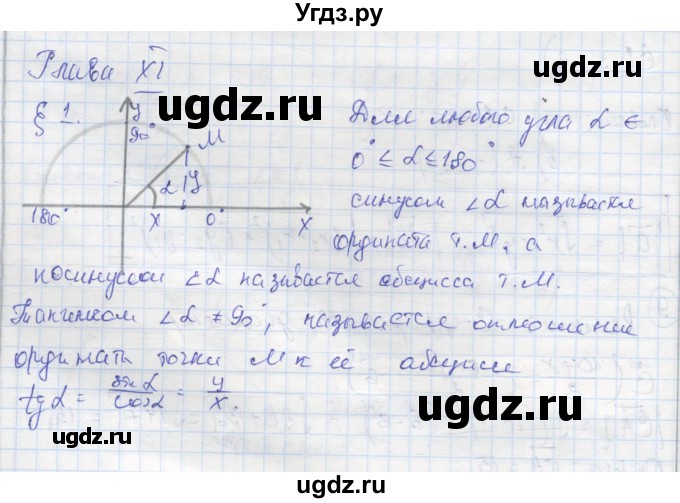 Угдз.ру
Глава XI
§ 1.
ugdz.ru
ugdz.ru
y
90°
M
α
y
180°
x
0°
x
Для любого угла α ∈
0° ≤ α ≤ 180°
синусом ∠α называется
ордината т. М, а
косинусом ∠α называется абсцисса т. М.
Тангенсом ∠α ≠ 90°, называется отношение
ординаты точки М к её абсциссе
tg α = sin α / cos α = y / x.
ugdz.ru
ugdz.ru
ugdz.ru
ugdz.ru
ugdz.ru
ugdz.ru